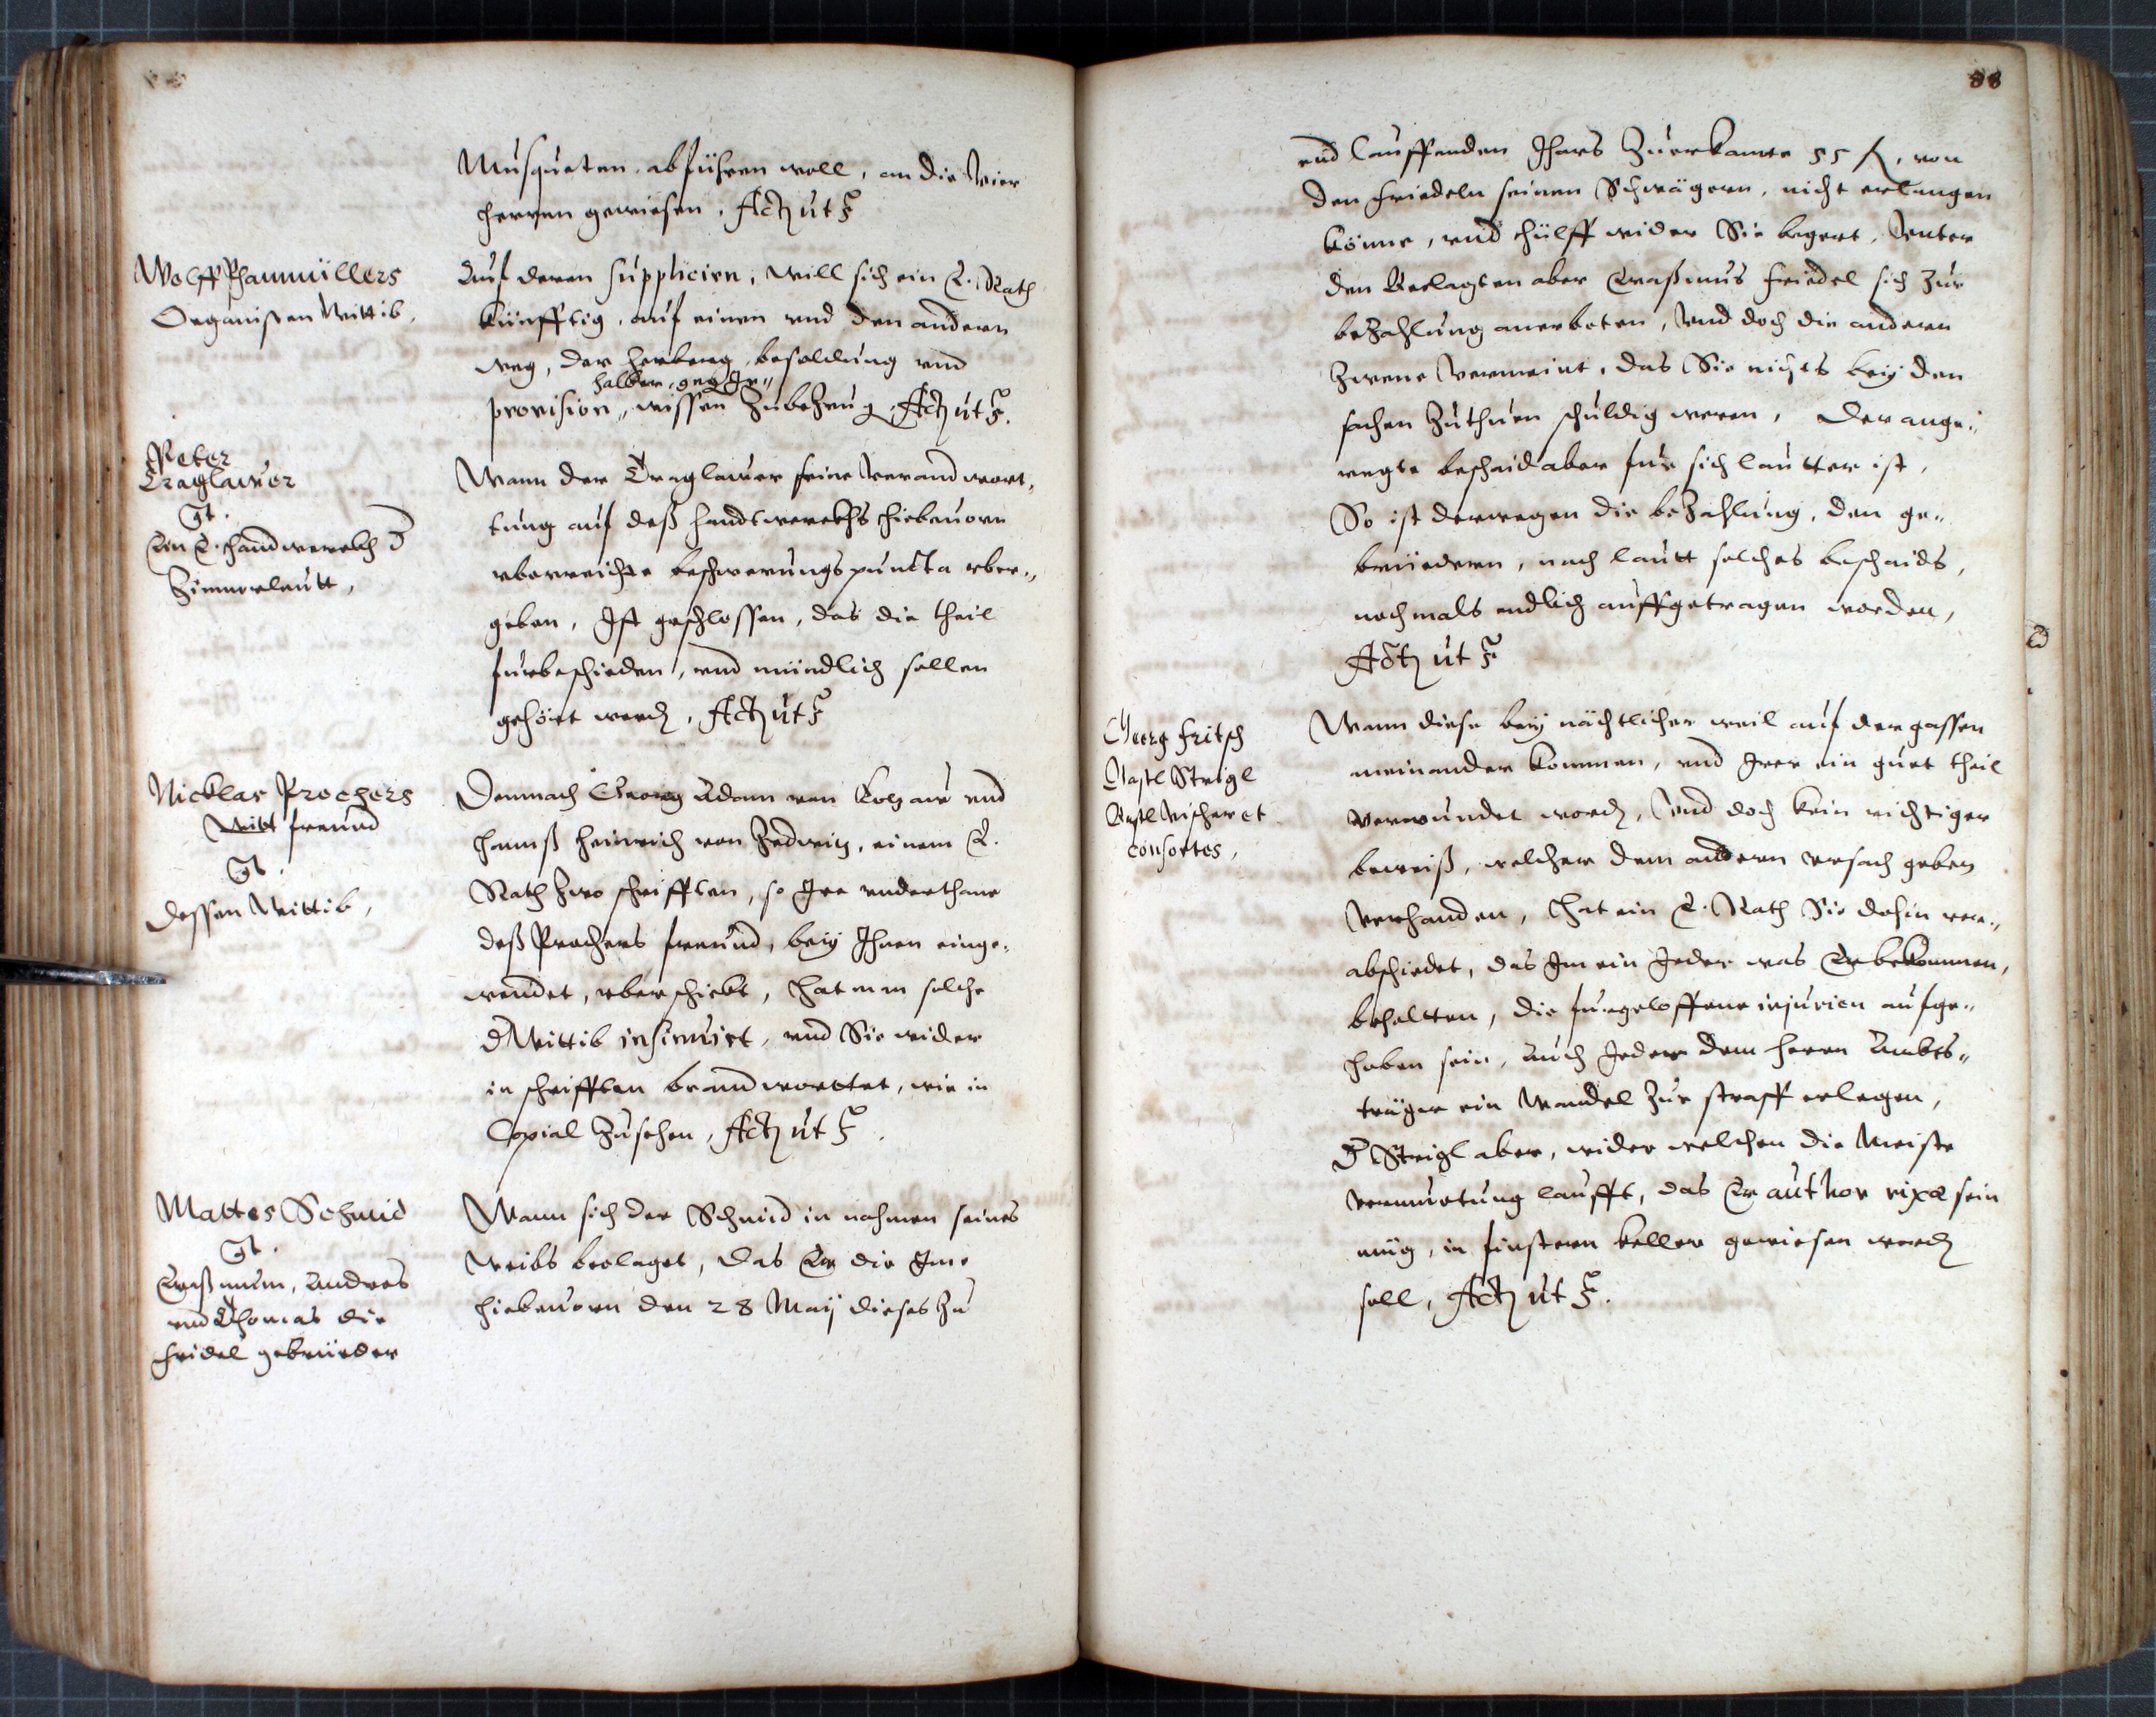 Musqueten, abführen woll, an die Vier
herren gewiesen, Act: ut s
Wolff Pfanmüllers
Organisten Wittib,
Auf deren suppliciren, will sich ein E. Rath
künfftig, auf einen vnd den andern
weg, der herberg, besoldung vnd
halber, geg Ir"
provision " wissen Zubezeug, Act: ut s.
Peter
Traglawer
Ein E. handwerckh d
Zimmerleutt,
Wann der Traglawer seine Verandwort,
tung auf deß handtwerckhs hiebeuorn
vberreichte beschwerungs puncta vber,,
geben, Ist geschlossen, das die theil
furbeschieden, vnd mündlich sollen
gehört werd, Act: ut s
Nicklas Prochers
Witt freund
dessen Wittib,
Demnach Georg Adam von Kotzaw vnd
Hannß Heinrich von Zedwitz, einem E.
Rath Zwo schrifften, so Ire vnderthane
deß Prochers freund, bey Ihnen einge,
wendet, vberschickt, Hat man solche
d Wittib insinuirt, vnd Sie wider
in schrifften beandworttet, wie in
Copial Zusehen, Act: ut s.
Mattes Schmid
Eraßmum, Andres
vnd Thomas die
Fridel gebrüeder
Wann sich der Schmid in nahmen seines
Weibs beclaget, das Er die Ime
hiebeuorn den 28 Maij dieses Zu
88
end lauffenden Jhars Zuerkante 55 f, von
den Friedeln seinen Schwägern, nicht erlangen
könne, vnd hülff wider Sie begert, Vnter
den Beclagten aber Eraßmus Friedel sich Zur
beZahlung anerboten, Vnd doch die andern
Zwene vermeint, das Sie nichts bey den
sachen Zuthuen schuldig weren, Der ange,,
regte beschaid aber fur sich lautter ist,
So ist derwegen die beZahlung, den ge,,
brüedern, nach lautt solches beschaids,
nochmals endlich auffgetragen worden,
Act: ut s
Georg Fritsch
Bastl Strigl
Bastl Vischer et
consortes,
Wann diese bey nächtlicher weil auf der gassen
aneinander kommen, vnd Irer ein guet theil
verwundet word, Vnd doch kein richtiger
beweiß, welcher dem andern vrsach geben
Verhanden, Hat ein E. Rath Sie dahin ver,,
abschiedet, das Im ein Jeder was Er bekommen,
behaltten, die furgeloffene injurien aufge,,
haben sein, Auch Jeder dem herrn Ambts,,
träger ein Wandel Zur straff erlegen,
d Strigl aber, wider welchen die Meiste
vermuetung laufft, das Er author rixæ sein
müg, in finstern keller gewiesen werd
soll, Act: ut s.